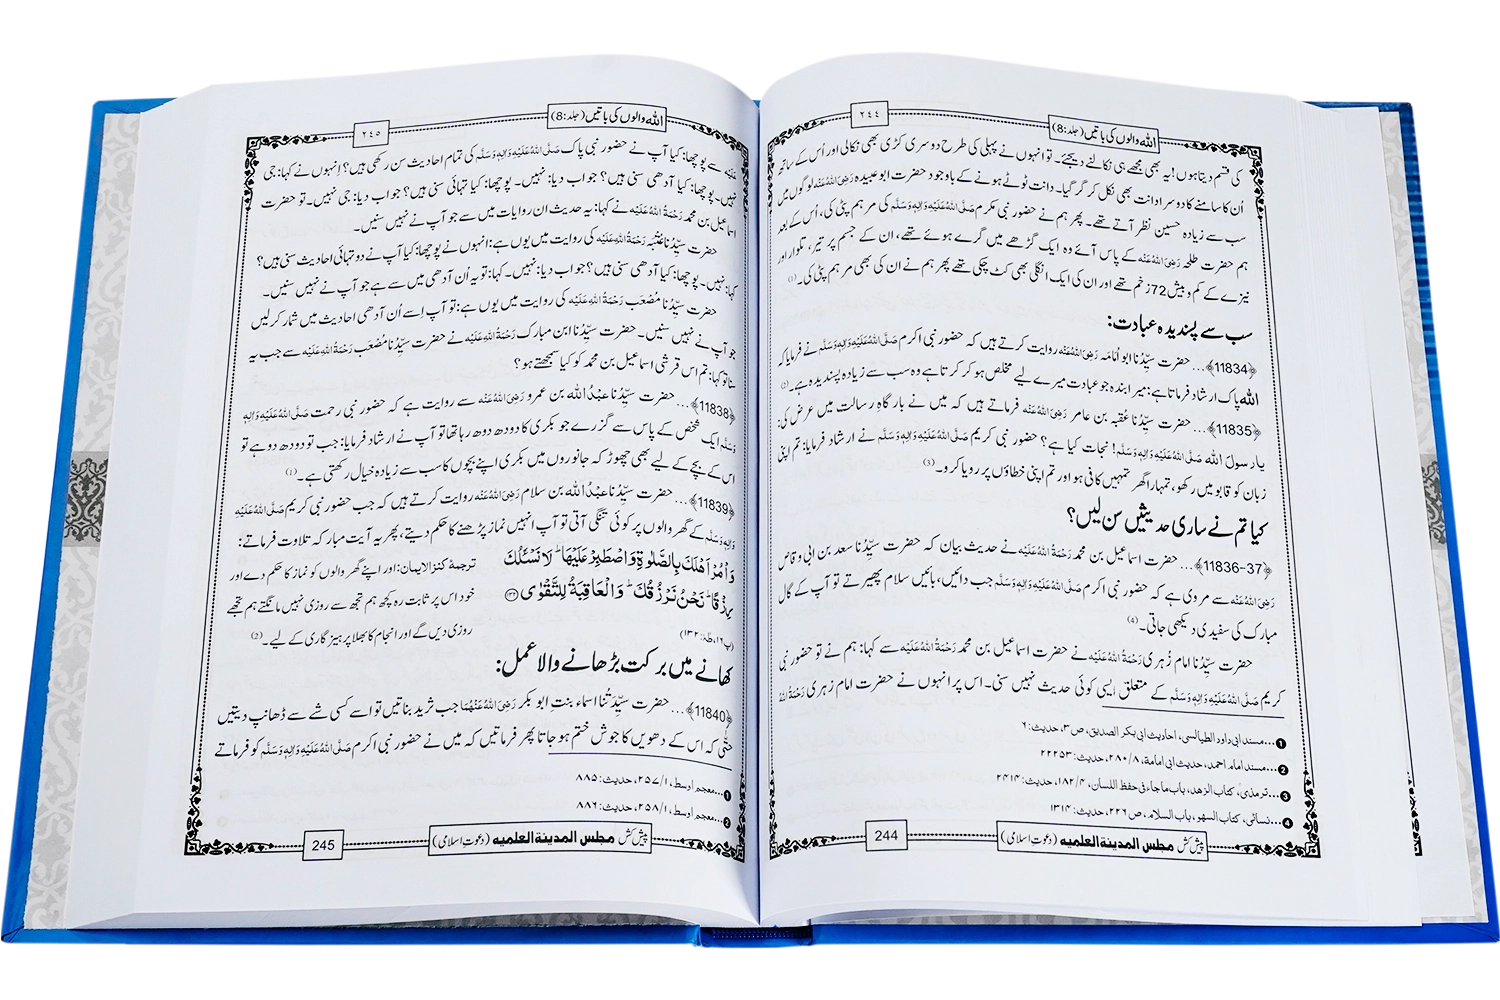 اللہ والوں کی باتیں (جلد:8)
٢٤٤
کی قسم دیتا ہوں! یہ بھی مجھے ہی نکالنے دیجئے۔ تو انہوں نے پہلی کی طرح دوسری کڑی بھی نکالی اور اُس کے ساتھ
اُن کا سامنے کا دوسرا دانت بھی نکل کر گر گیا۔ دانت ٹوٹے ہونے کے باوجود حضرت ابو عبیدہ رَضِیَ اللہُ عَنْہ لوگوں میں
سب سے زیادہ حسین نظر آتے تھے۔ پھر ہم نے حضور نبی مکرم صَلَّی اللہُ عَلَیْہِ وَاٰلِہٖ وَسَلَّم کی مرہم پٹی کی، اُس کے بعد
ہم حضرت طلحہ رَضِیَ اللہُ عَنْہ کے پاس آئے وہ ایک گڑھے میں گرے ہوئے تھے، ان کے جسم پر تیر، تلوار اور
نیزے کے کم و بیش 72 زخم تھے اور ان کی ایک انگلی بھی کٹ چکی تھی پھر ہم نے ان کی بھی مرہم پٹی کی۔(1)
سب سے پسندیدہ عبادت:
﴿11834﴾... حضرت سیِّدُنا ابو اُمَامَہ رَضِیَ اللہُ عَنْہ روایت کرتے ہیں کہ حضور نبی اکرم صَلَّی اللہُ عَلَیْہِ وَاٰلِہٖ وَسَلَّم نے فرمایا کہ
اللہ پاک ارشاد فرماتا ہے: میرا بندہ جو عبادت میرے لیے مخلص ہو کر کرتا ہے وہ سب سے زیادہ پسندیدہ ہے۔(2)
﴿11835﴾... حضرت سیِّدُنا عُقبہ بن عامر رَضِیَ اللہُ عَنْہ فرماتے ہیں کہ میں نے بارگاہِ رسالت میں عرض کی:
یارسولَ اللہ صَلَّی اللہُ عَلَیْہِ وَاٰلِہٖ وَسَلَّم! نجات کیا ہے؟ حضور نبی کریم صَلَّی اللہُ عَلَیْہِ وَاٰلِہٖ وَسَلَّم نے ارشاد فرمایا: تم اپنی
زبان کو قابو میں رکھو، تمہارا گھر تمہیں کافی ہو اور تم اپنی خطاؤں پر رویا کرو۔(3)
کیا تم نے ساری حدیثیں سن لیں؟
﴿11836-37﴾... حضرت اسماعیل بن محمد رَحْمَۃُ اللہِ عَلَیْہ نے حدیث بیان کہ حضرت سیِّدُنا سعد بن ابی وقاص
رَضِیَ اللہُ عَنْہ سے مروی ہے کہ حضور نبی اکرم صَلَّی اللہُ عَلَیْہِ وَاٰلِہٖ وَسَلَّم جب دائیں، بائیں سلام پھیرتے تو آپ کے گال
مبارک کی سفیدی دیکھی جاتی۔(4)
حضرت سیِّدُنا امام زُہری رَحْمَۃُ اللہِ عَلَیْہ نے حضرت اسماعیل بن محمد رَحْمَۃُ اللہِ عَلَیْہ سے کہا: ہم نے تو حضور نبی
کریم صَلَّی اللہُ عَلَیْہِ وَاٰلِہٖ وَسَلَّم کے متعلق ایسی کوئی حدیث نہیں سنی۔ اس پر انہوں نے حضرت امام زہری رَحْمَۃُ اللہ
❶...مسند ابی داود الطیالسی، احادیث ابی بکر الصدیق، ص۳، حدیث: ۶
❷...مسند امام احمد، حدیث ابی امامة، ۸/ ۲۸۰، حدیث: ۲۲۲۵۳
❸...ترمذی، کتاب الزھد، باب ما جاء فی حفظ اللسان، ۴/ ۱۸۲، حدیث: ۲۴۱۴
❹...نسائی، کتاب السھو، باب السلام، ص۲۲۶، حدیث: ۱۳۱۴
پیش کش مجلس المدینة العلمیه (دعوتِ اسلامی)
244
اللہ والوں کی باتیں (جلد:8)
٢٤٥
عَلَیْہ سے پوچھا: کیا آپ نے حضور نبی پاک صَلَّی اللہُ عَلَیْہِ وَاٰلِہٖ وَسَلَّم کی تمام احادیث سن رکھی ہیں؟ اِنہوں نے کہا: جی
نہیں۔ پوچھا: کیا آدھی سنی ہیں؟ جواب دیا: نہیں۔ پوچھا: کیا تہائی سنی ہیں؟ جواب دیا: جی نہیں۔ تو حضرت
اسماعیل بن محمد رَحْمَۃُ اللہِ عَلَیْہ نے کہا: یہ حدیث ان روایات میں سے جو آپ نے نہیں سنیں۔
حضرت سیِّدُنا عُتْبَہ رَحْمَۃُ اللہِ عَلَیْہ کی روایت میں یوں ہے: انہوں نے پوچھا: کیا آپ نے دو تہائی احادیث سنی ہیں؟
کہا: نہیں۔ پوچھا: کیا آدھی سنی ہیں؟ جواب دیا: نہیں۔ کہا: تو یہ اُن آدھی میں سے ہے جو آپ نے نہیں سنیں۔
حضرت سیِّدُنا مُصْعَب رَحْمَۃُ اللہِ عَلَیْہ کی روایت میں یوں ہے: تو آپ اِسے اُن آدھی احادیث میں شمار کرلیں
جو آپ نے نہیں سنیں۔ حضرت سیِّدُنا ابن مبارک رَحْمَۃُ اللہِ عَلَیْہ نے حضرت سیِّدُنا مُصْعَب رَحْمَۃُ اللہِ عَلَیْہ سے جب یہ
سنا تو کہا: تم اس قرشی اسماعیل بن محمد کو کیا سمجھتے ہو؟
﴿11838﴾... حضرت سیِّدُنا عَبْدُ اللہ بن عمرو رَضِیَ اللہُ عَنْہ سے روایت ہے کہ حضور نبی رحمت صَلَّی اللہُ عَلَیْہِ وَاٰلِہٖ
وَسَلَّم ایک شخص کے پاس سے گزرے جو بکری کا دودھ دوھ رہا تھا تو آپ نے ارشاد فرمایا: جب تو دودھ دوہے تو
اس کے بچے کے لیے بھی چھوڑ کہ جانوروں میں بکری اپنے بچوں کا سب سے زیادہ خیال رکھتی ہے۔(1)
﴿11839﴾... حضرت سیِّدُنا عبْدُ اللہ بن سلام رَضِیَ اللہُ عَنْہ روایت کرتے ہیں کہ جب حضور نبی کریم صَلَّی اللہُ عَلَیْہِ
وَاٰلِہٖ وَسَلَّم کے گھر والوں پر کوئی تنگی آتی تو آپ انہیں نماز پڑھنے کا حکم دیتے، پھر یہ آیت مبارکہ تلاوت فرماتے:
وَاْمُرْ اَهْلَكَ بِالصَّلٰوةِ وَاصْطَبِرْ عَلَیْهَاؕ-لَا نَسْــٴَـلُكَ
رِزْقًاؕ-نَحْنُ نَرْزُقُكَؕ-وَالْعَاقِبَةُ لِلتَّقْوٰى(۱۳۲)
(پ۱۶، طٰہٰ: ۱۳۲)
ترجمۂ کنز الایمان: اور اپنے گھر والوں کو نماز کا حکم دے اور
خود اس پر ثابت رہ کچھ ہم تجھ سے روزی نہیں مانگتے ہم تجھے
روزی دیں گے اور انجام کا بھلا پرہیزگاری کے لیے۔(2)
کھانے میں برکت بڑھانے والا عمل:
﴿11840﴾... حضرت سیِّدَتُنا اسماء بنت ابو بکر رَضِیَ اللہُ عَنْہُمَا جب ثرید بناتیں تو اسے کسی شے سے ڈھانپ دیتیں
حتّٰی کہ اس کے دھویں کا جوش ختم ہو جاتا پھر فرماتیں کہ میں نے حضور نبی اکرم صَلَّی اللہُ عَلَیْہِ وَاٰلِہٖ وَسَلَّم کو فرماتے
❶...معجم اوسط، ۱/ ۲۵۷، حدیث: ۸۸۵
❷...معجم اوسط، ۱/ ۲۵۸، حدیث: ۸۸۶
پیش کش مجلس المدینة العلمیه (دعوتِ اسلامی)
245